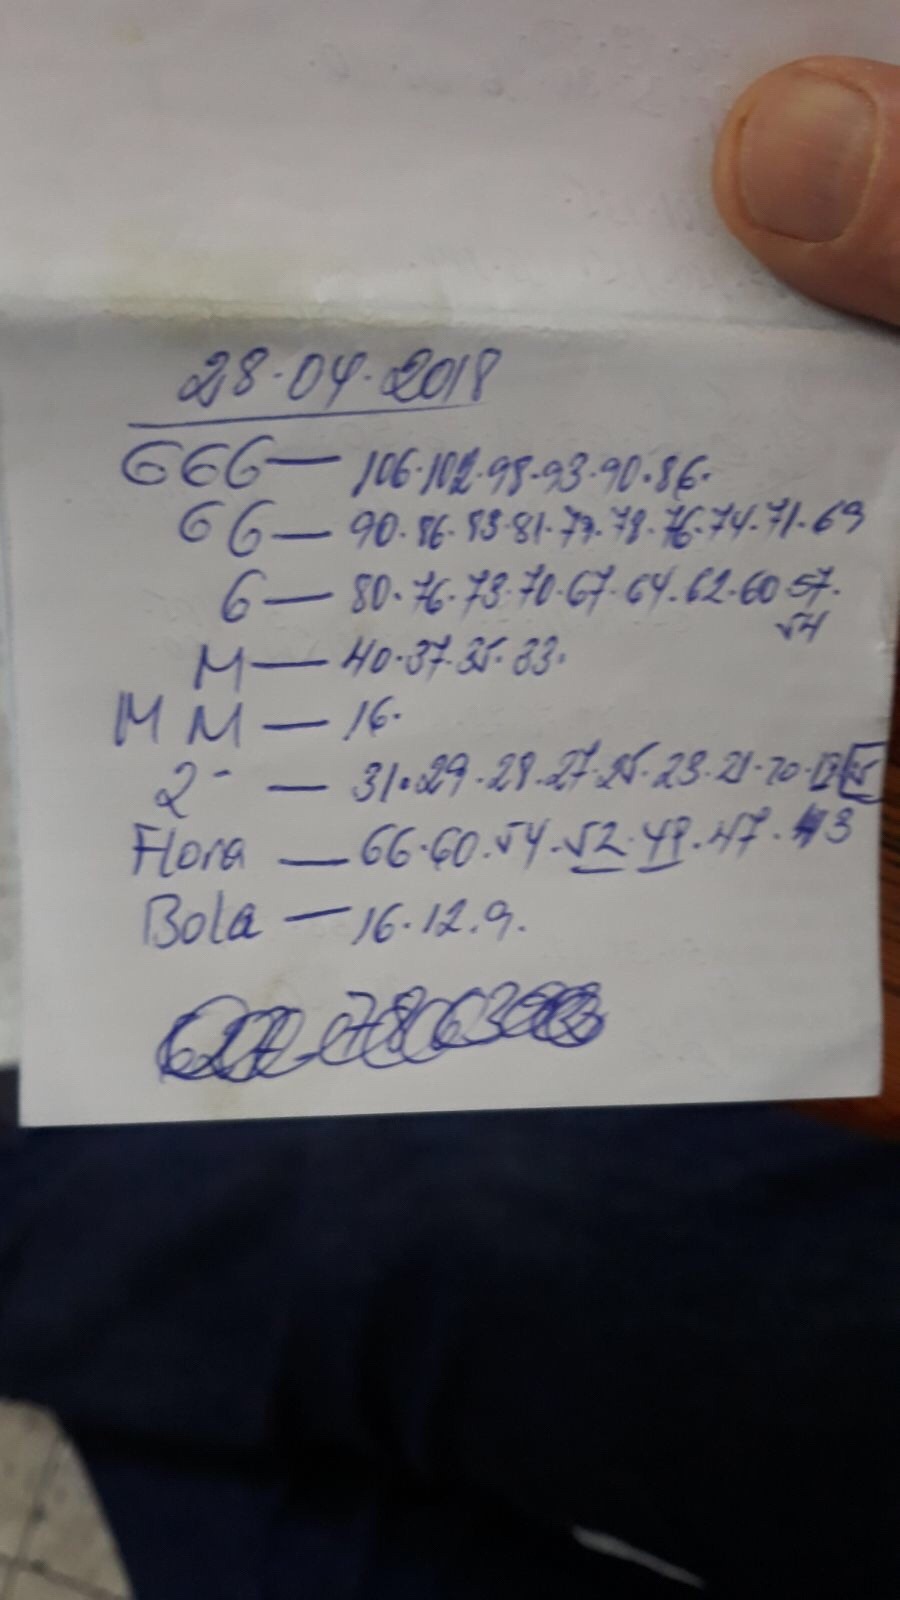 28.04.2018
GGG — 106.102.98.93.90.86.
GG — 90.86.83.81.79.78.76.74.71.69
G — 80.76.73.70.67.64.62.60.57.
54
M — 40.37.35.33.
MM — 16.
2- — 31.29.28.27.25.23.21.20.
Flora — 66.60.54.52.49.47.43
Bola — 16.12.9.